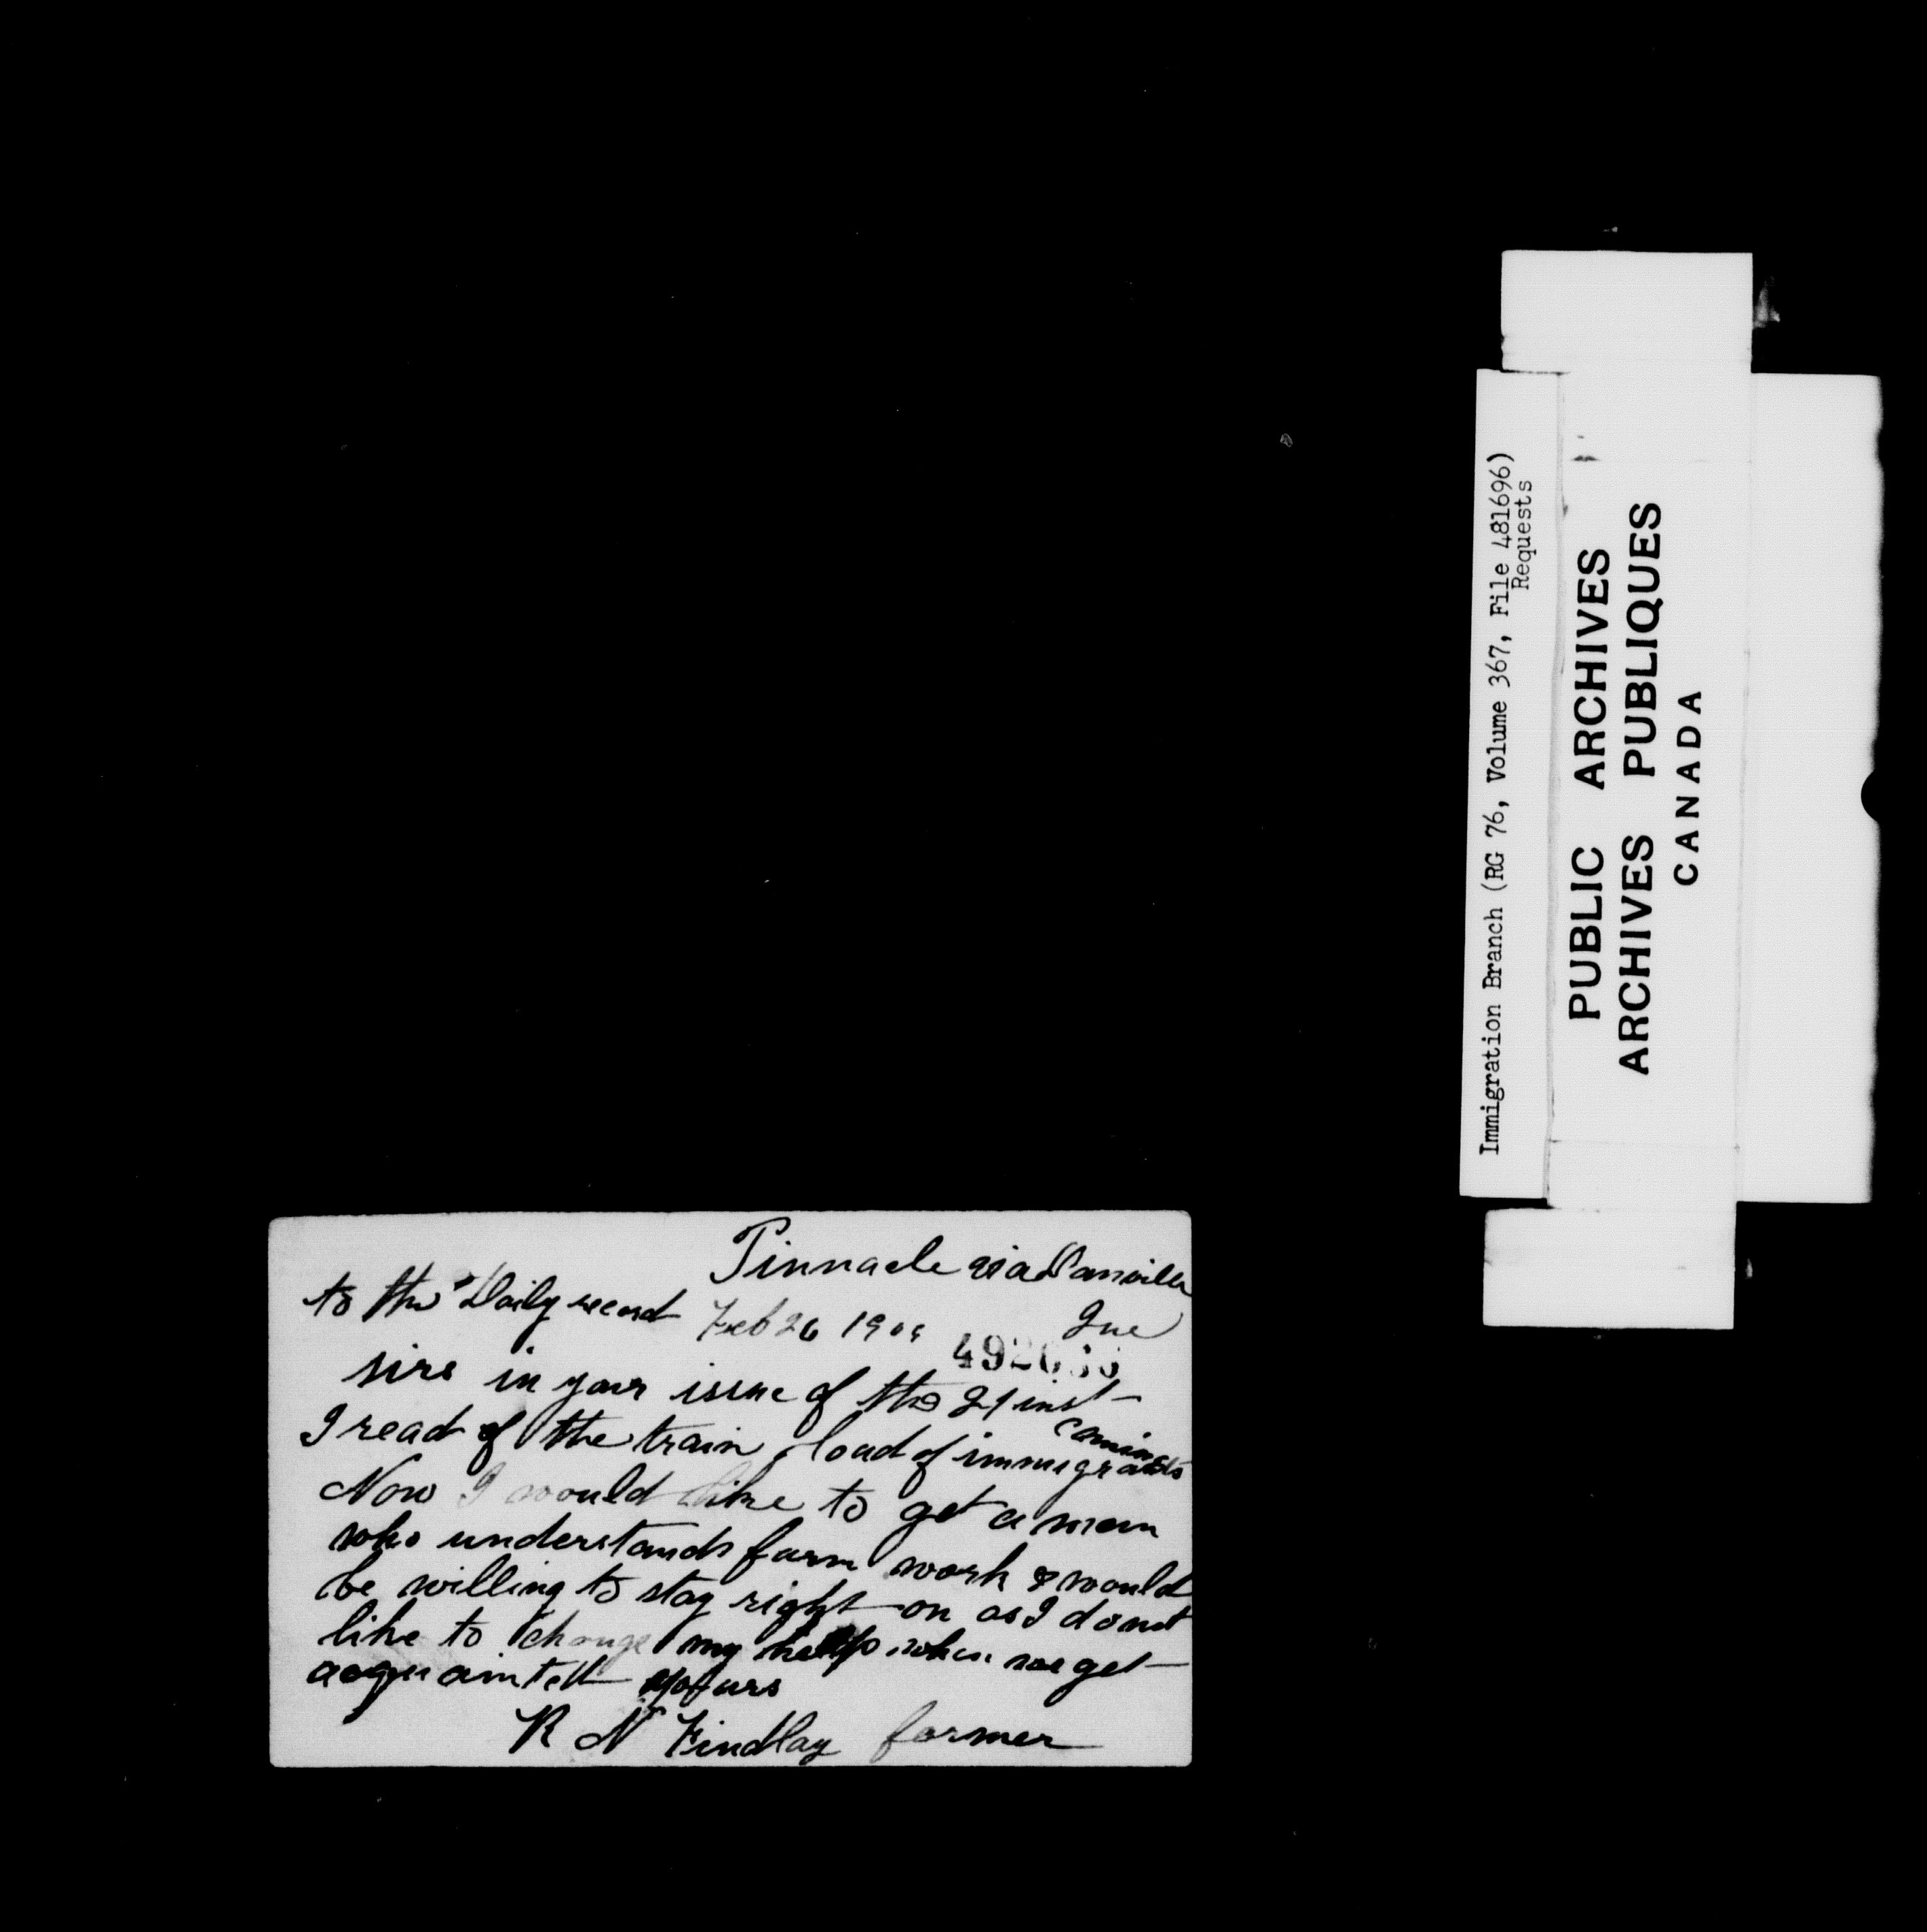 Pinnacle via Danville
Que
to the Daily record Feb 26 190
sirs in your issue of the 21 inst
I read of the train load of immigrants coming
Now I would like to get a man
who understands farm work & would
be willing to stay right on as I do not
like to change my help when we get
acquainted yours
R N Findlay farmer
Immigration Branch (RG 76, Volume 367, File 481696)
Requests
PUBLIC ARCHIVES
ARCHIVES PUBLIQUES
CANADA